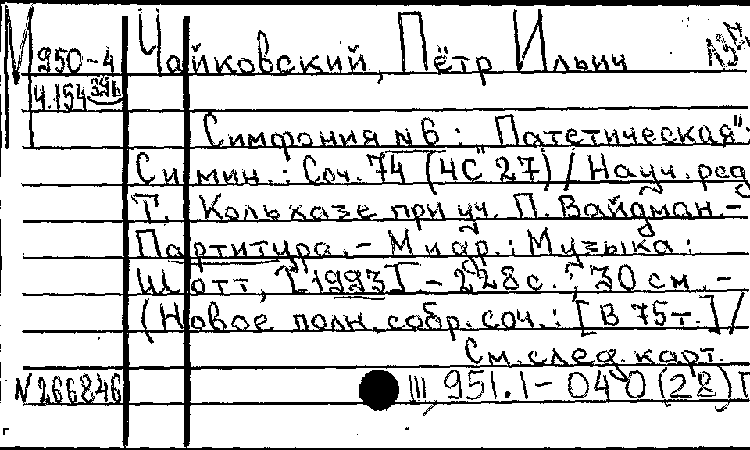 М 950-4 Чайковский, Пётр Ильич
Ч.154
Симфония N 6: "Патетическая":
Си мин.: Соч. 74 (ЧС 27) / Науч. ред.
Т. Кольхазе при уч. П. Вайдман.–
Партитура.– М и др.: Музыка:
Шотт, [1993] – 228 с.; 30 см.–
(Новое полн. собр. соч.: [В 75 т.]/
См. след. карт.
N 266846 III, 951.1–040(28)